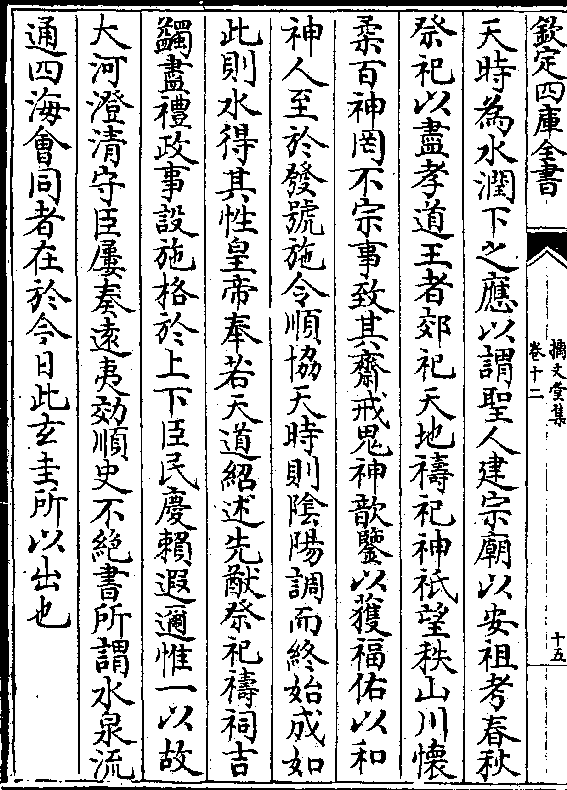 欽定四庫全書
摛文堂集
卷十二
十五
天時為水潤下之應以謂聖人建宗廟以安祖考春秋
祭祀以盡孝道王者郊祀天地禱祀神祇望秩山川懷
柔百神罔不宗事致其齋戒鬼神歆鑒以獲福佑以和
神人至於發號施令順協天時則陰陽調而終始成如
此則水得其性皇帝奉若天道紹述先猷祭祀禱祠吉
蠲盡禮政事設施格於上下臣民慶賴遐邇惟一以故
大河澄清守臣屢奏遠夷効順史不絶書所謂水泉流
通四海會同者在於今日此玄圭所以出也